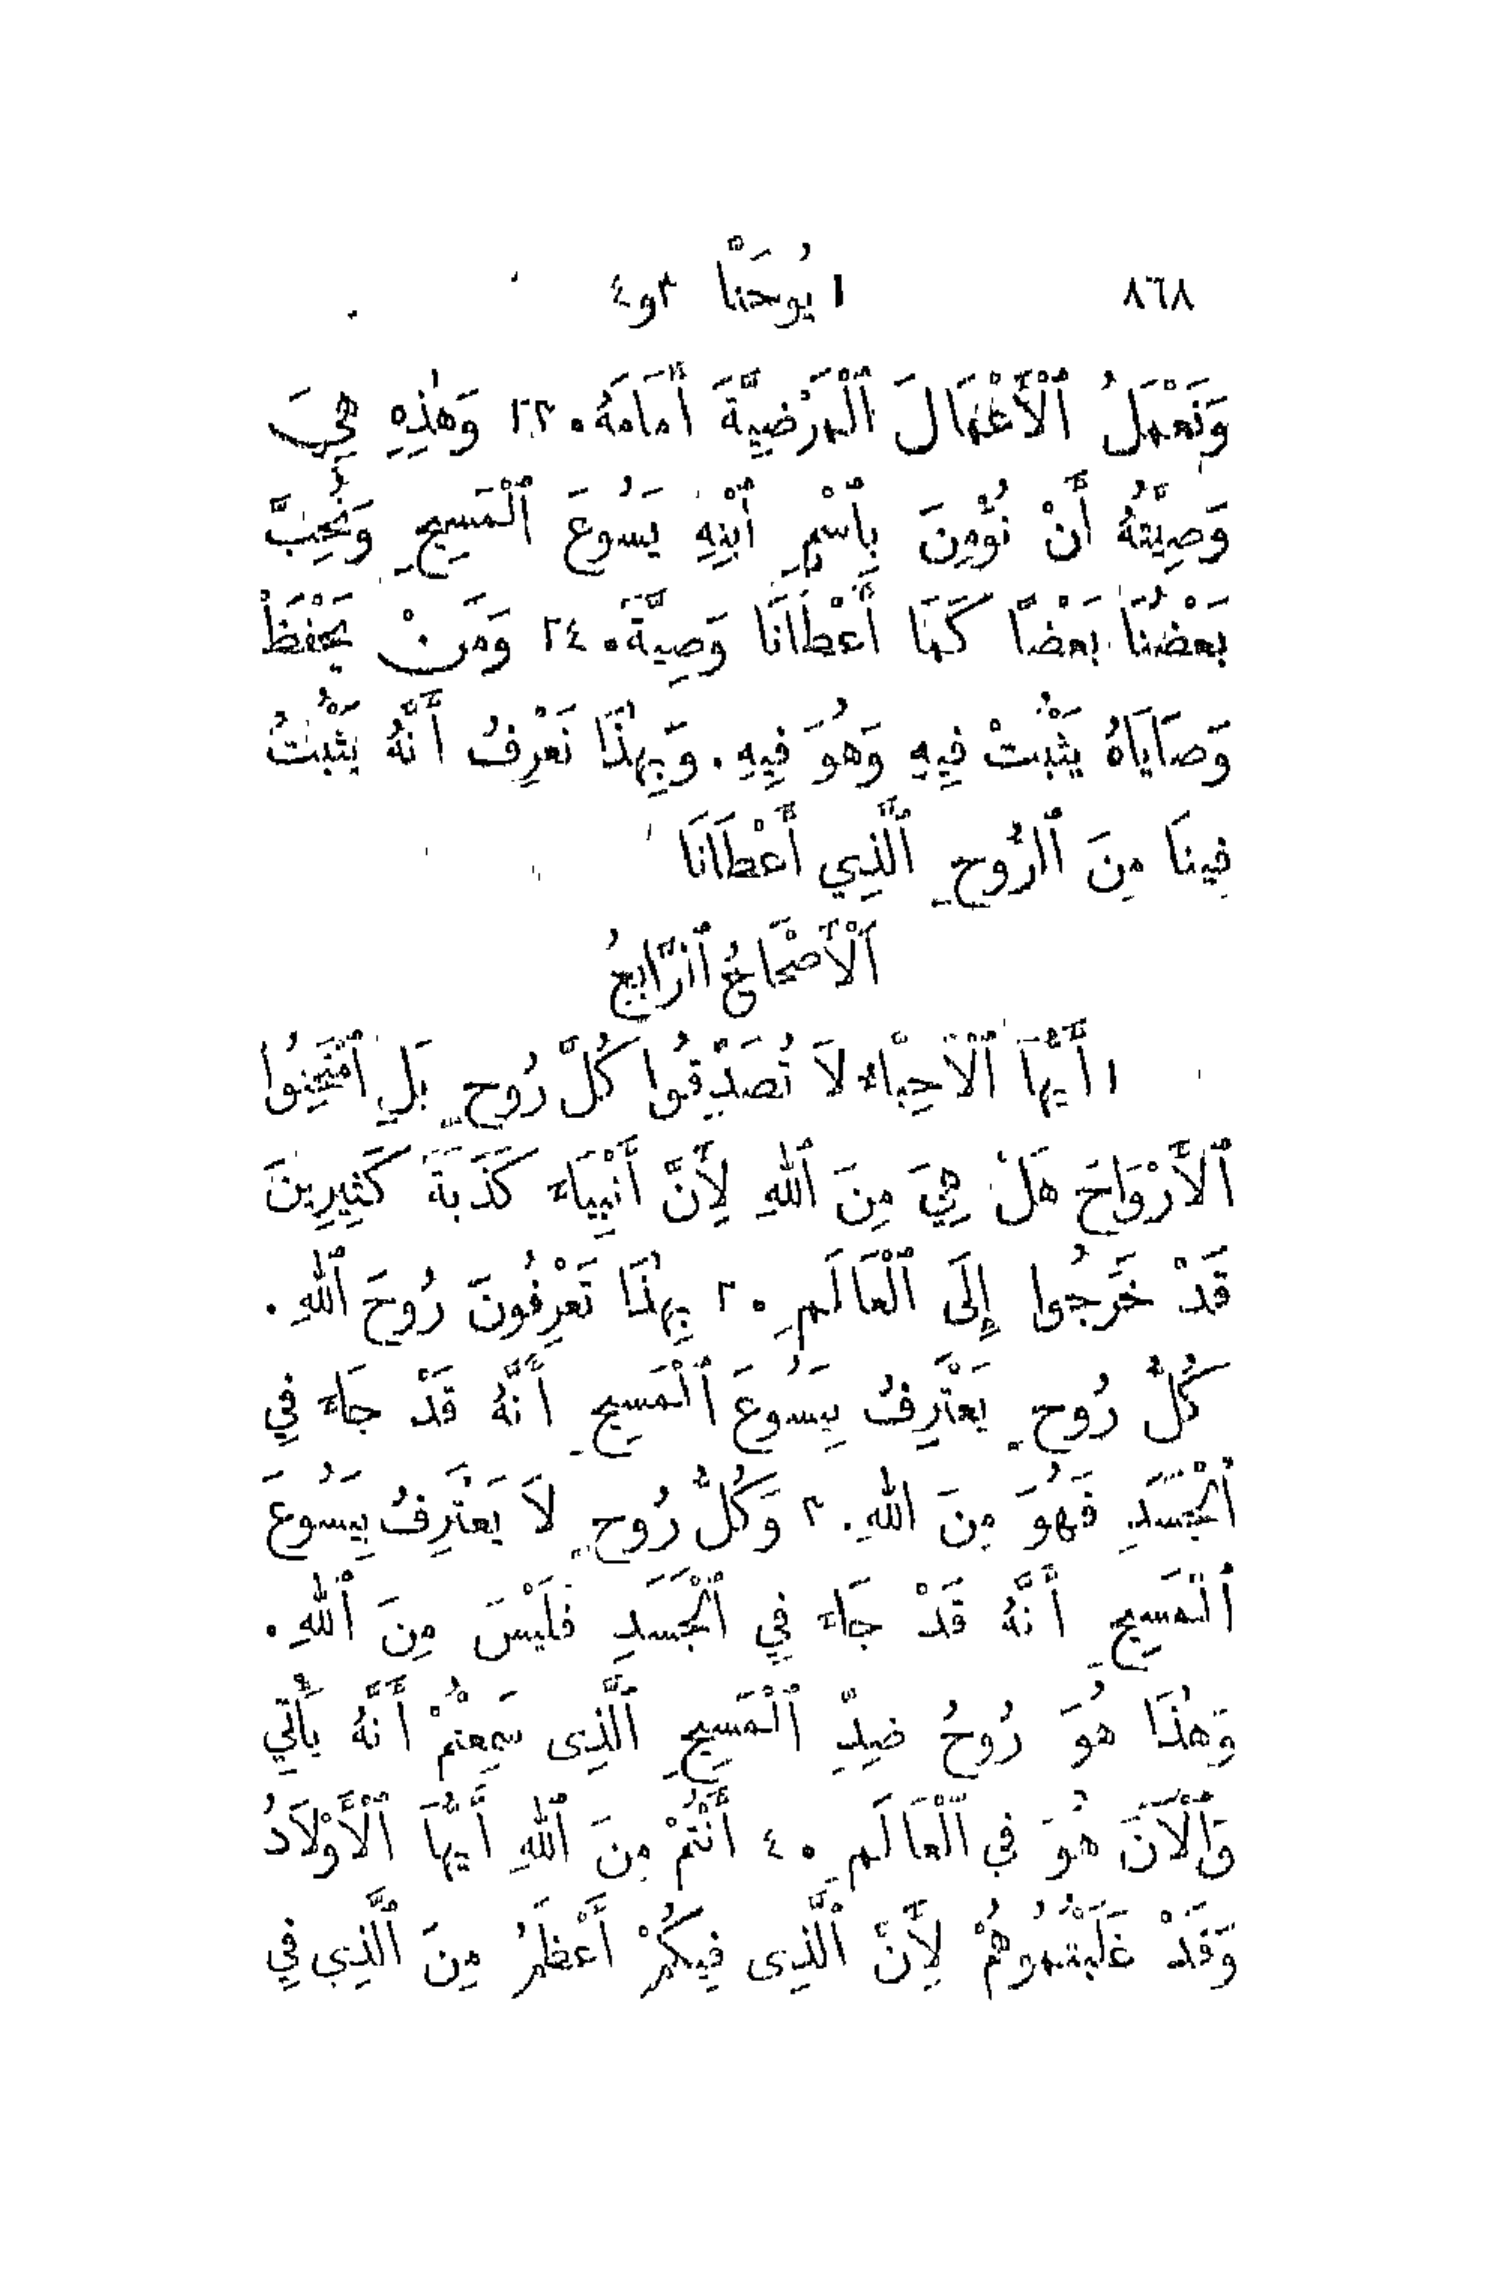 ٨٦٨ ١ يُوحَنَّا ٣و٤
وَنَعْمَلُ ٱلْأَعْمَالَ ٱلْمَرْضِيَّةَ أَمَامَهُ. ٢٣ وَهٰذِهِ هِيَ
وَصِيَّتُهُ أَنْ نُؤْمِنَ بِٱسْمِ ٱبْنِهِ يَسُوعَ ٱلْمَسِيحِ وَنُحِبَّ
بَعْضُنَا بَعْضًا كَمَا أَعْطَانَا وَصِيَّةً. ٢٤ وَمَنْ يَحْفَظْ
وَصَايَاهُ يَثْبُتْ فِيهِ وَهُوَ فِيهِ. وَبِهٰذَا نَعْرِفُ أَنَّهُ يَثْبُتُ
فِينَا مِنَ ٱلرُّوحِ ٱلَّذِي أَعْطَانَا
اَلْأَصْحَاحُ ٱلرَّابِعُ
١ أَيُّهَا ٱلْأَحِبَّاءُ لَا تُصَدِّقُوا كُلَّ رُوحٍ بَلِ ٱمْتَحِنُوا
ٱلْأَرْوَاحَ هَلْ هِيَ مِنَ ٱللهِ لِأَنَّ أَنْبِيَاءَ كَذَبَةً كَثِيرِينَ
قَدْ خَرَجُوا إِلَى ٱلْعَالَمِ. ٢ بِهٰذَا تَعْرِفُونَ رُوحَ ٱللهِ.
كُلُّ رُوحٍ يَعْتَرِفُ بِيَسُوعَ ٱلْمَسِيحِ أَنَّهُ قَدْ جَاءَ فِي
ٱلْجَسَدِ فَهُوَ مِنَ اللهِ. ٣ وَكُلُّ رُوحٍ لَا يَعْتَرِفُ بِيَسُوعَ
ٱلْمَسِيحِ أَنَّهُ قَدْ جَاءَ فِي ٱلْجَسَدِ فَلَيْسَ مِنَ ٱللهِ.
وَهٰذَا هُوَ رُوحُ ضِدِّ ٱلْمَسِيحِ ٱلَّذِي سَمِعْتُمْ أَنَّهُ يَأْتِي
وَٱلْآنَ هُوَ فِي ٱلْعَالَمِ. ٤ أَنْتُمْ مِنَ ٱللهِ أَيُّهَا ٱلْأَوْلَادُ
وَقَدْ غَلَبْتُمُوهُمْ لِأَنَّ ٱلَّذِي فِيكُمْ أَعْظَمُ مِنَ ٱلَّذِي فِي